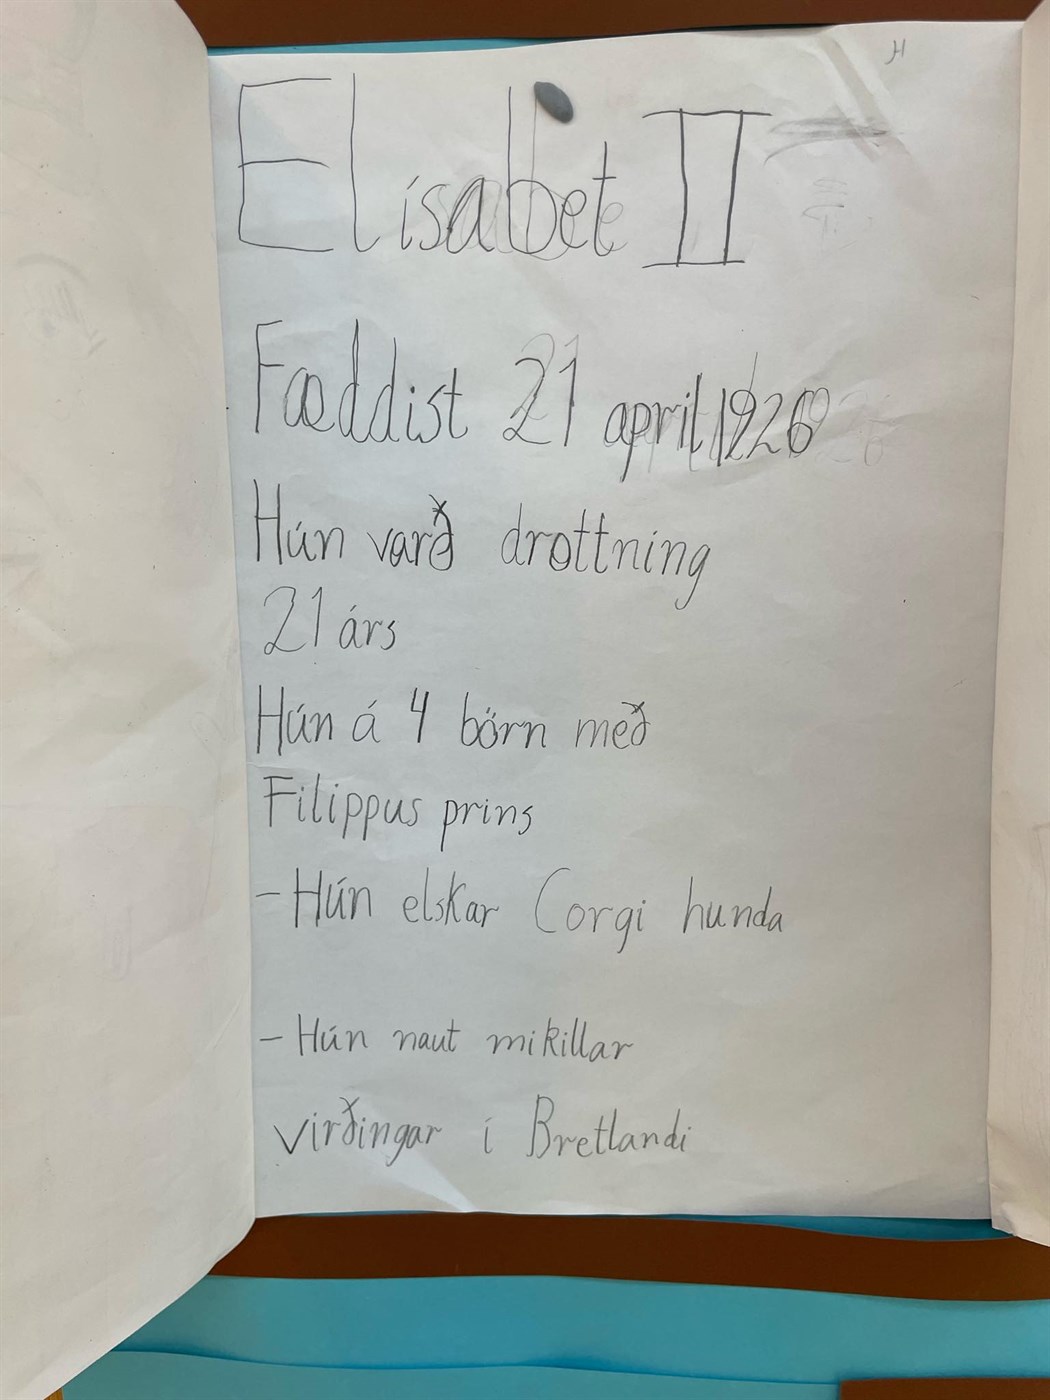 Elísabet II
Fæddist 21 april 1926
Hún varð drottning
21 árs
Hún á 4 börn með
Filippus prins
- Hún elskar Corgi hunda
- Hún naut mikillar
virðingar í Bretlandi